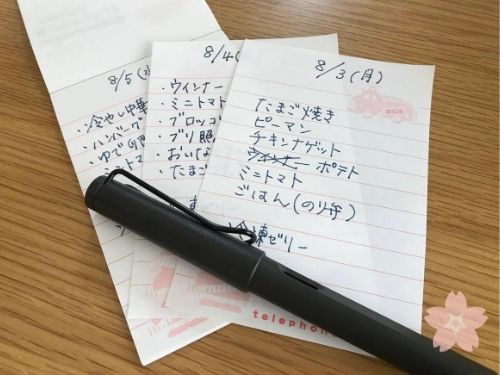 8/5(水
・冷やし中華
・ハンバーグ
・ゆで
ミニトマ
8/4(
・ウインナー
・ミニトマト
・ブロッコリ
・ブリ照
・おいな
・たまご
8/3(月)
たまご焼き
ピーマン
チキンナゲット
ウインナー ポテト
ミニトマト
ごはん(のり弁)
冷凍ゼリー
telephon